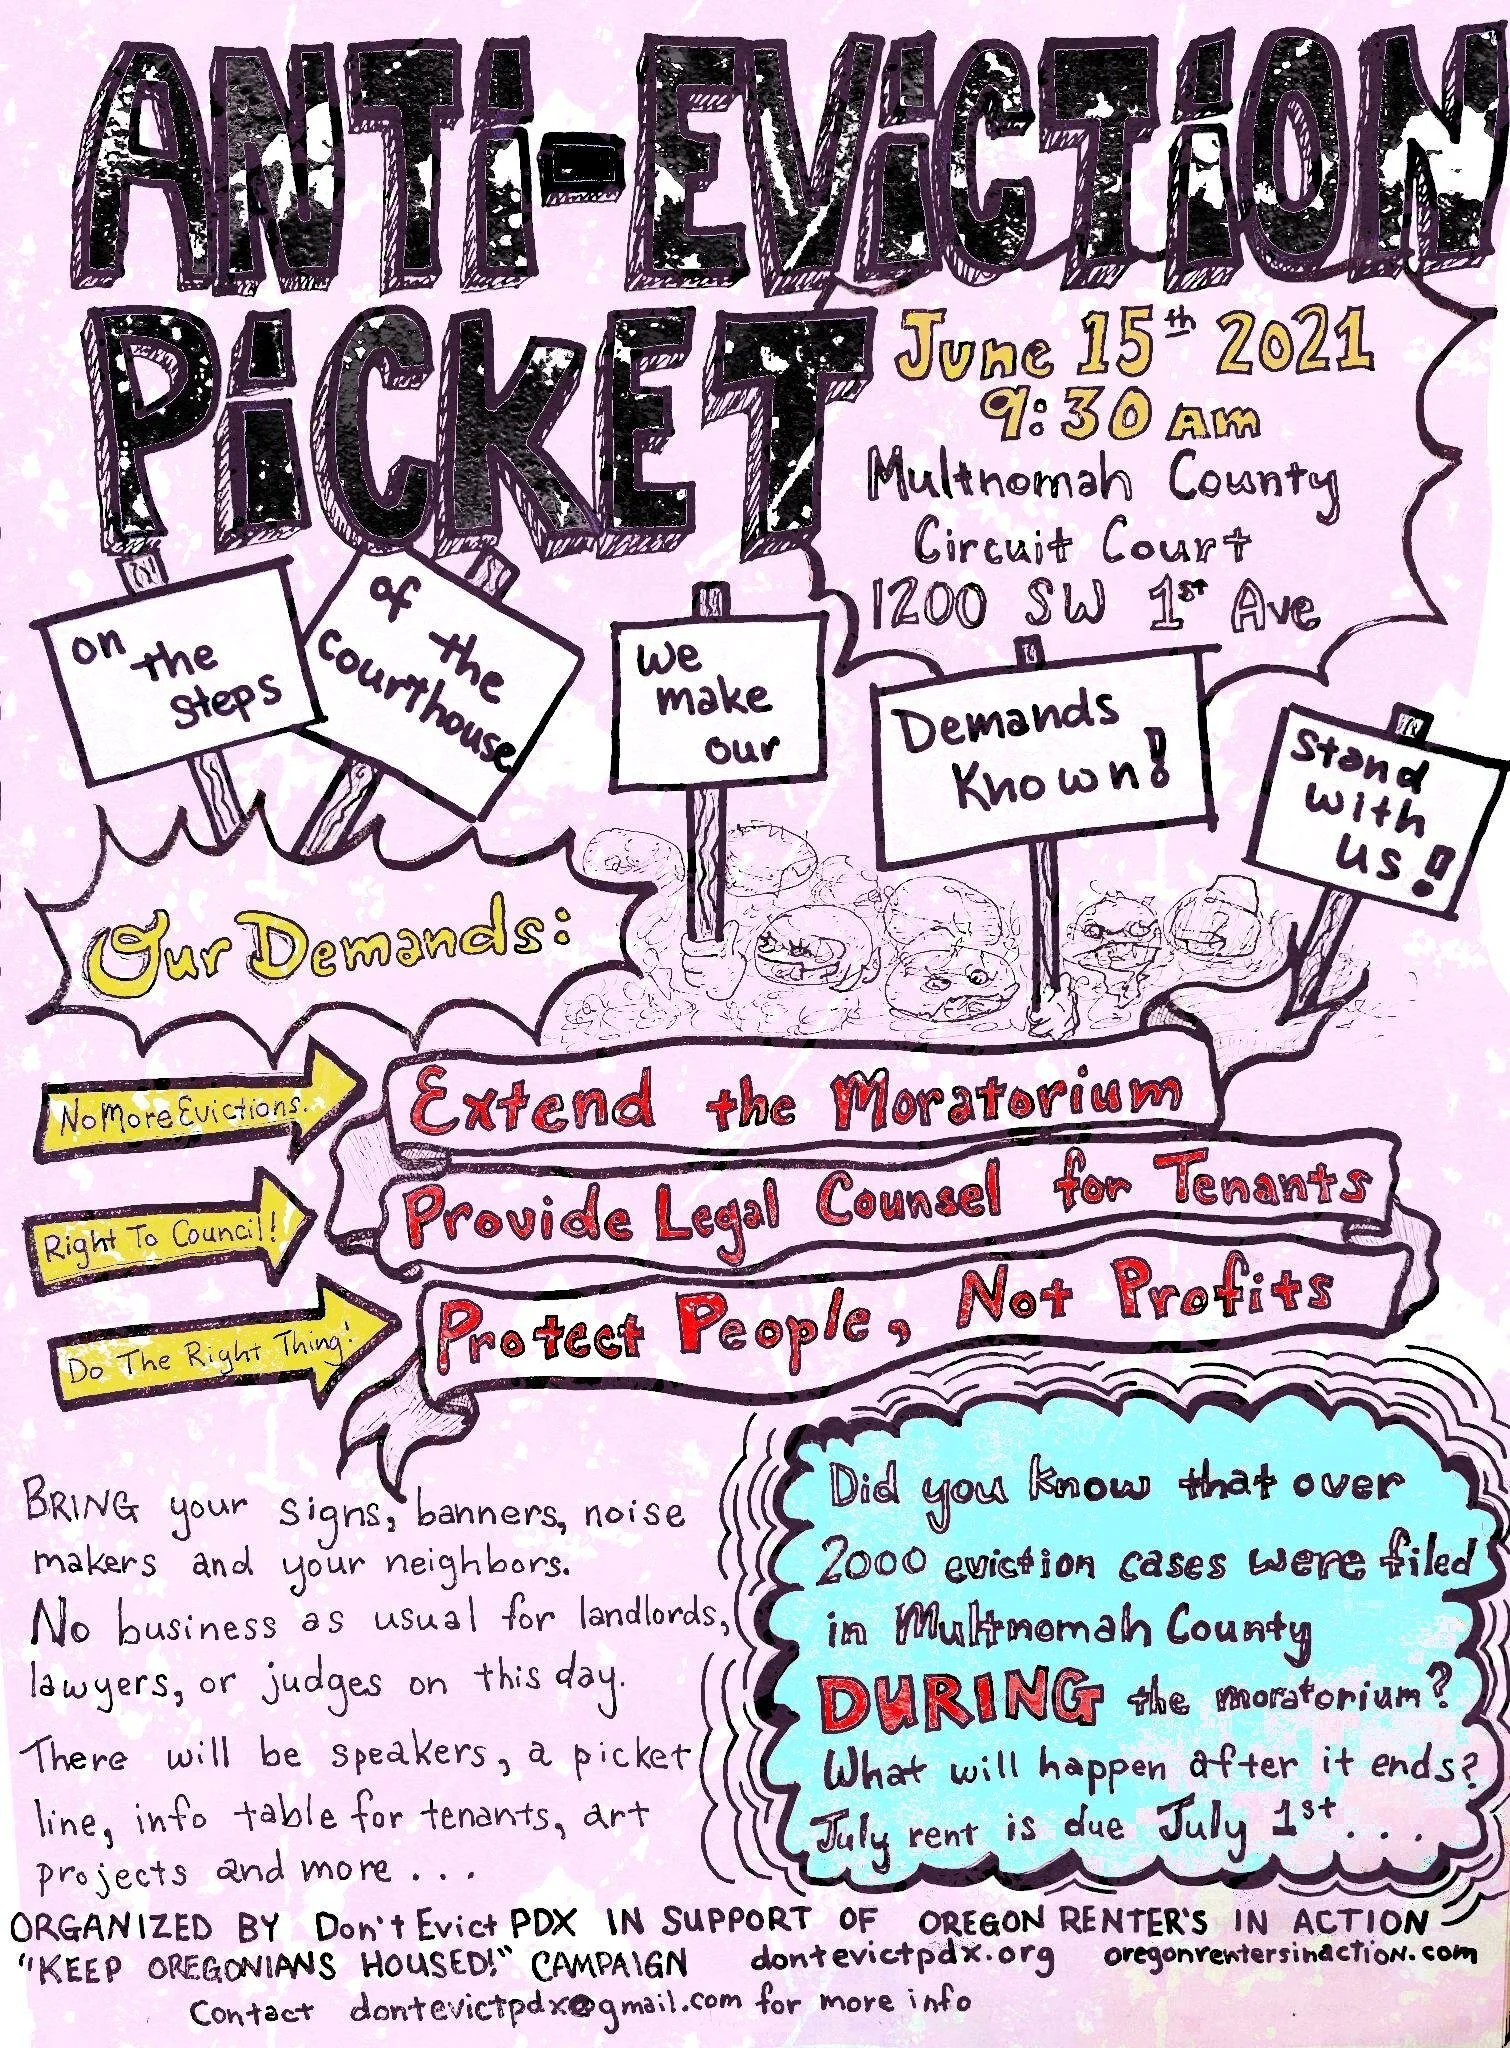 ANTi-EViCTiON
PiCKET
June 15th 2021
9:30 am
Multnomah County
Circuit Court
1200 SW 1st Ave
on
the
steps
of
the
courthouse
we
make
our
Demands
Known!
Stand
with
us!
Our Demands:
No More Evictions.
Extend the Moratorium
Right To Council!
Provide Legal Counsel for Tenants
Do The Right Thing!
Protect People, Not Profits
BRING your signs, banners, noise
makers and your neighbors.
No business as usual for landlords,
lawyers, or judges on this day.
There will be speakers, a picket
line, info table for tenants, art
projects and more...
Did you know that over
2000 eviction cases were filed
in Multnomah County
DURING the moratorium?
What will happen after it ends?
July rent is due July 1st...
ORGANIZED BY Don't Evict PDX IN SUPPORT OF OREGON RENTER'S IN ACTION
"KEEP OREGONIANS HOUSED!" CAMPAIGN dontevictpdx.org oregonrentersinaction.com
Contact dontevictpdx@gmail.com for more info